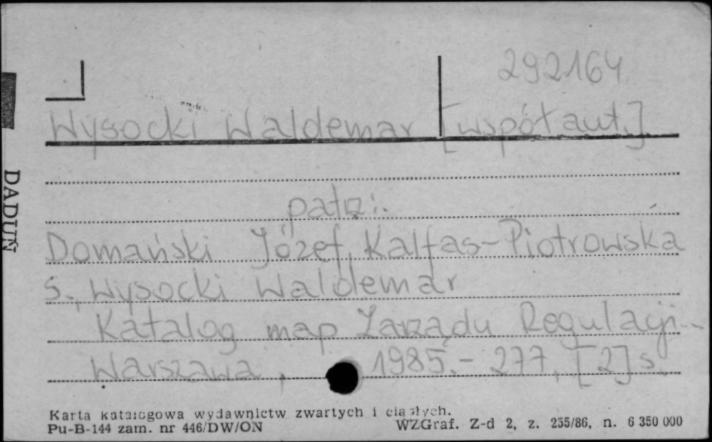 292164
Wysocki Waldemar [współaut.]
patrz:
Domański Józef, Kalfas-Piotrowska
S., Wysocki Waldemar
Katalog map Zarządu Regulacji...
Warszawa, 1985.- 277, [2] s.
Karta katalogowa wydawnictw zwartych i ciągłych.
Pu-B-144 zam. nr 446/DW/ON WZGraf. Z-d 2, z. 235/86, n. 6 350 000
DADUŃ